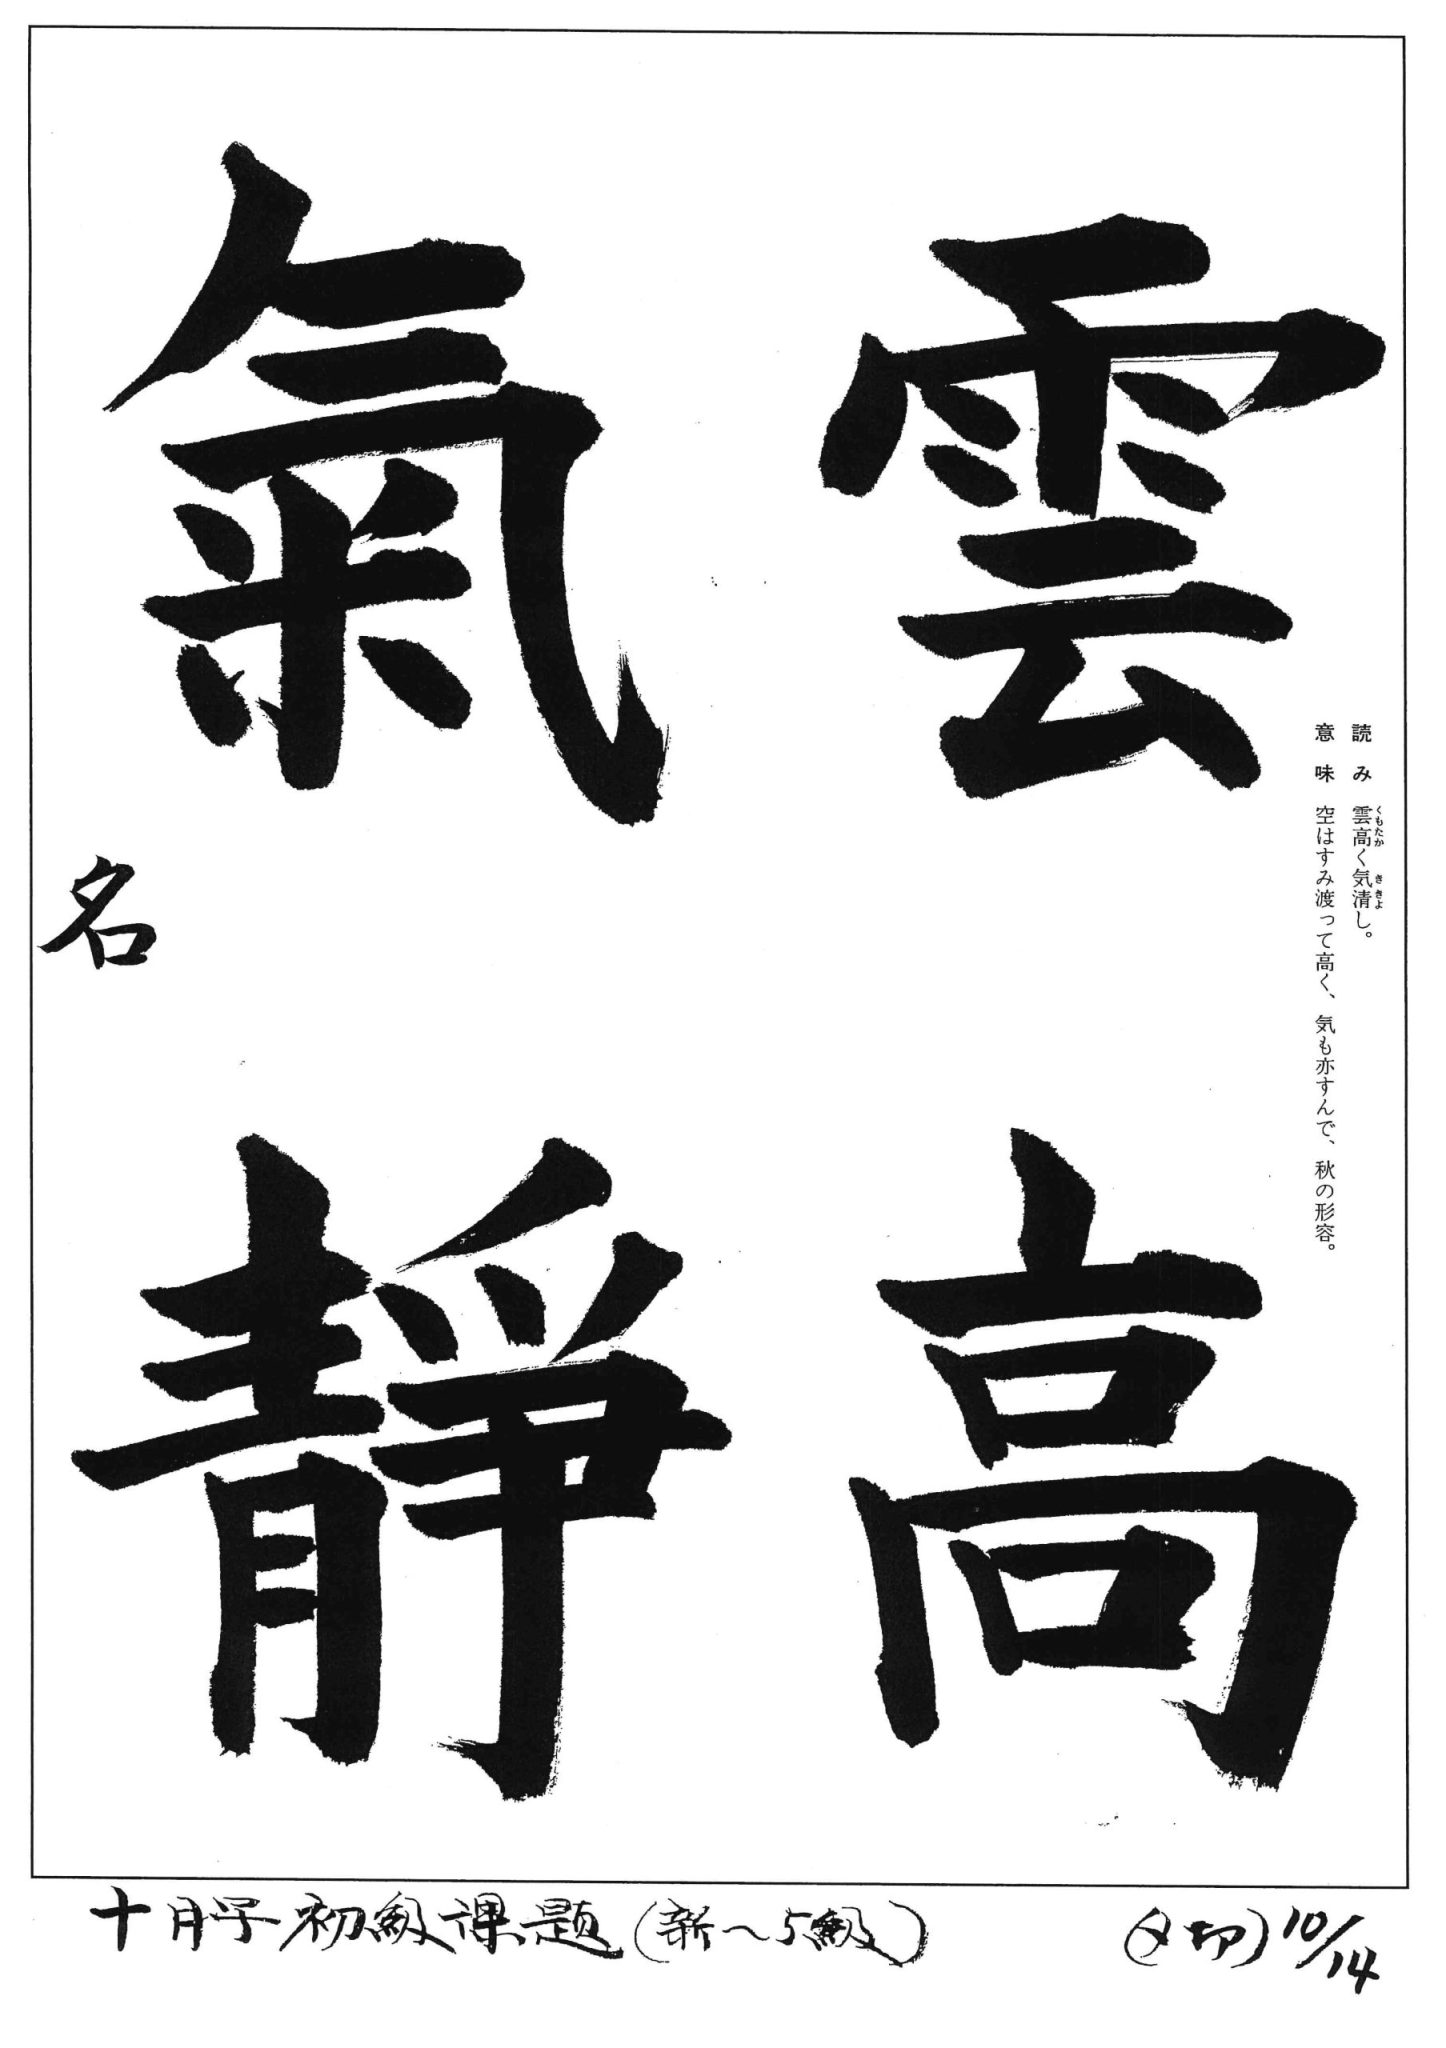 読み 雲高く気清し。
くもたか ききよ
意味 空はすみ渡って高く、気も亦すんで、秋の形容。
雲高
氣靜
名
十月号初級課題(新〜5級)
(〆切)10/14